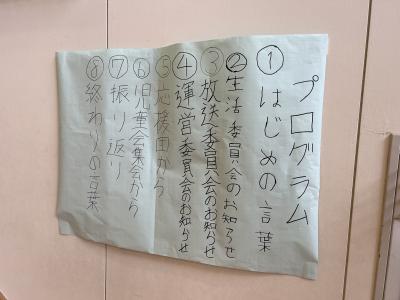 プログラム
①はじめの言葉
②生活委員会のお知らせ
③放送委員会のお知らせ
④運営委員会のお知らせ
⑤応援団から
⑥児童会集会から
⑦振り返り
⑧終わりの言葉